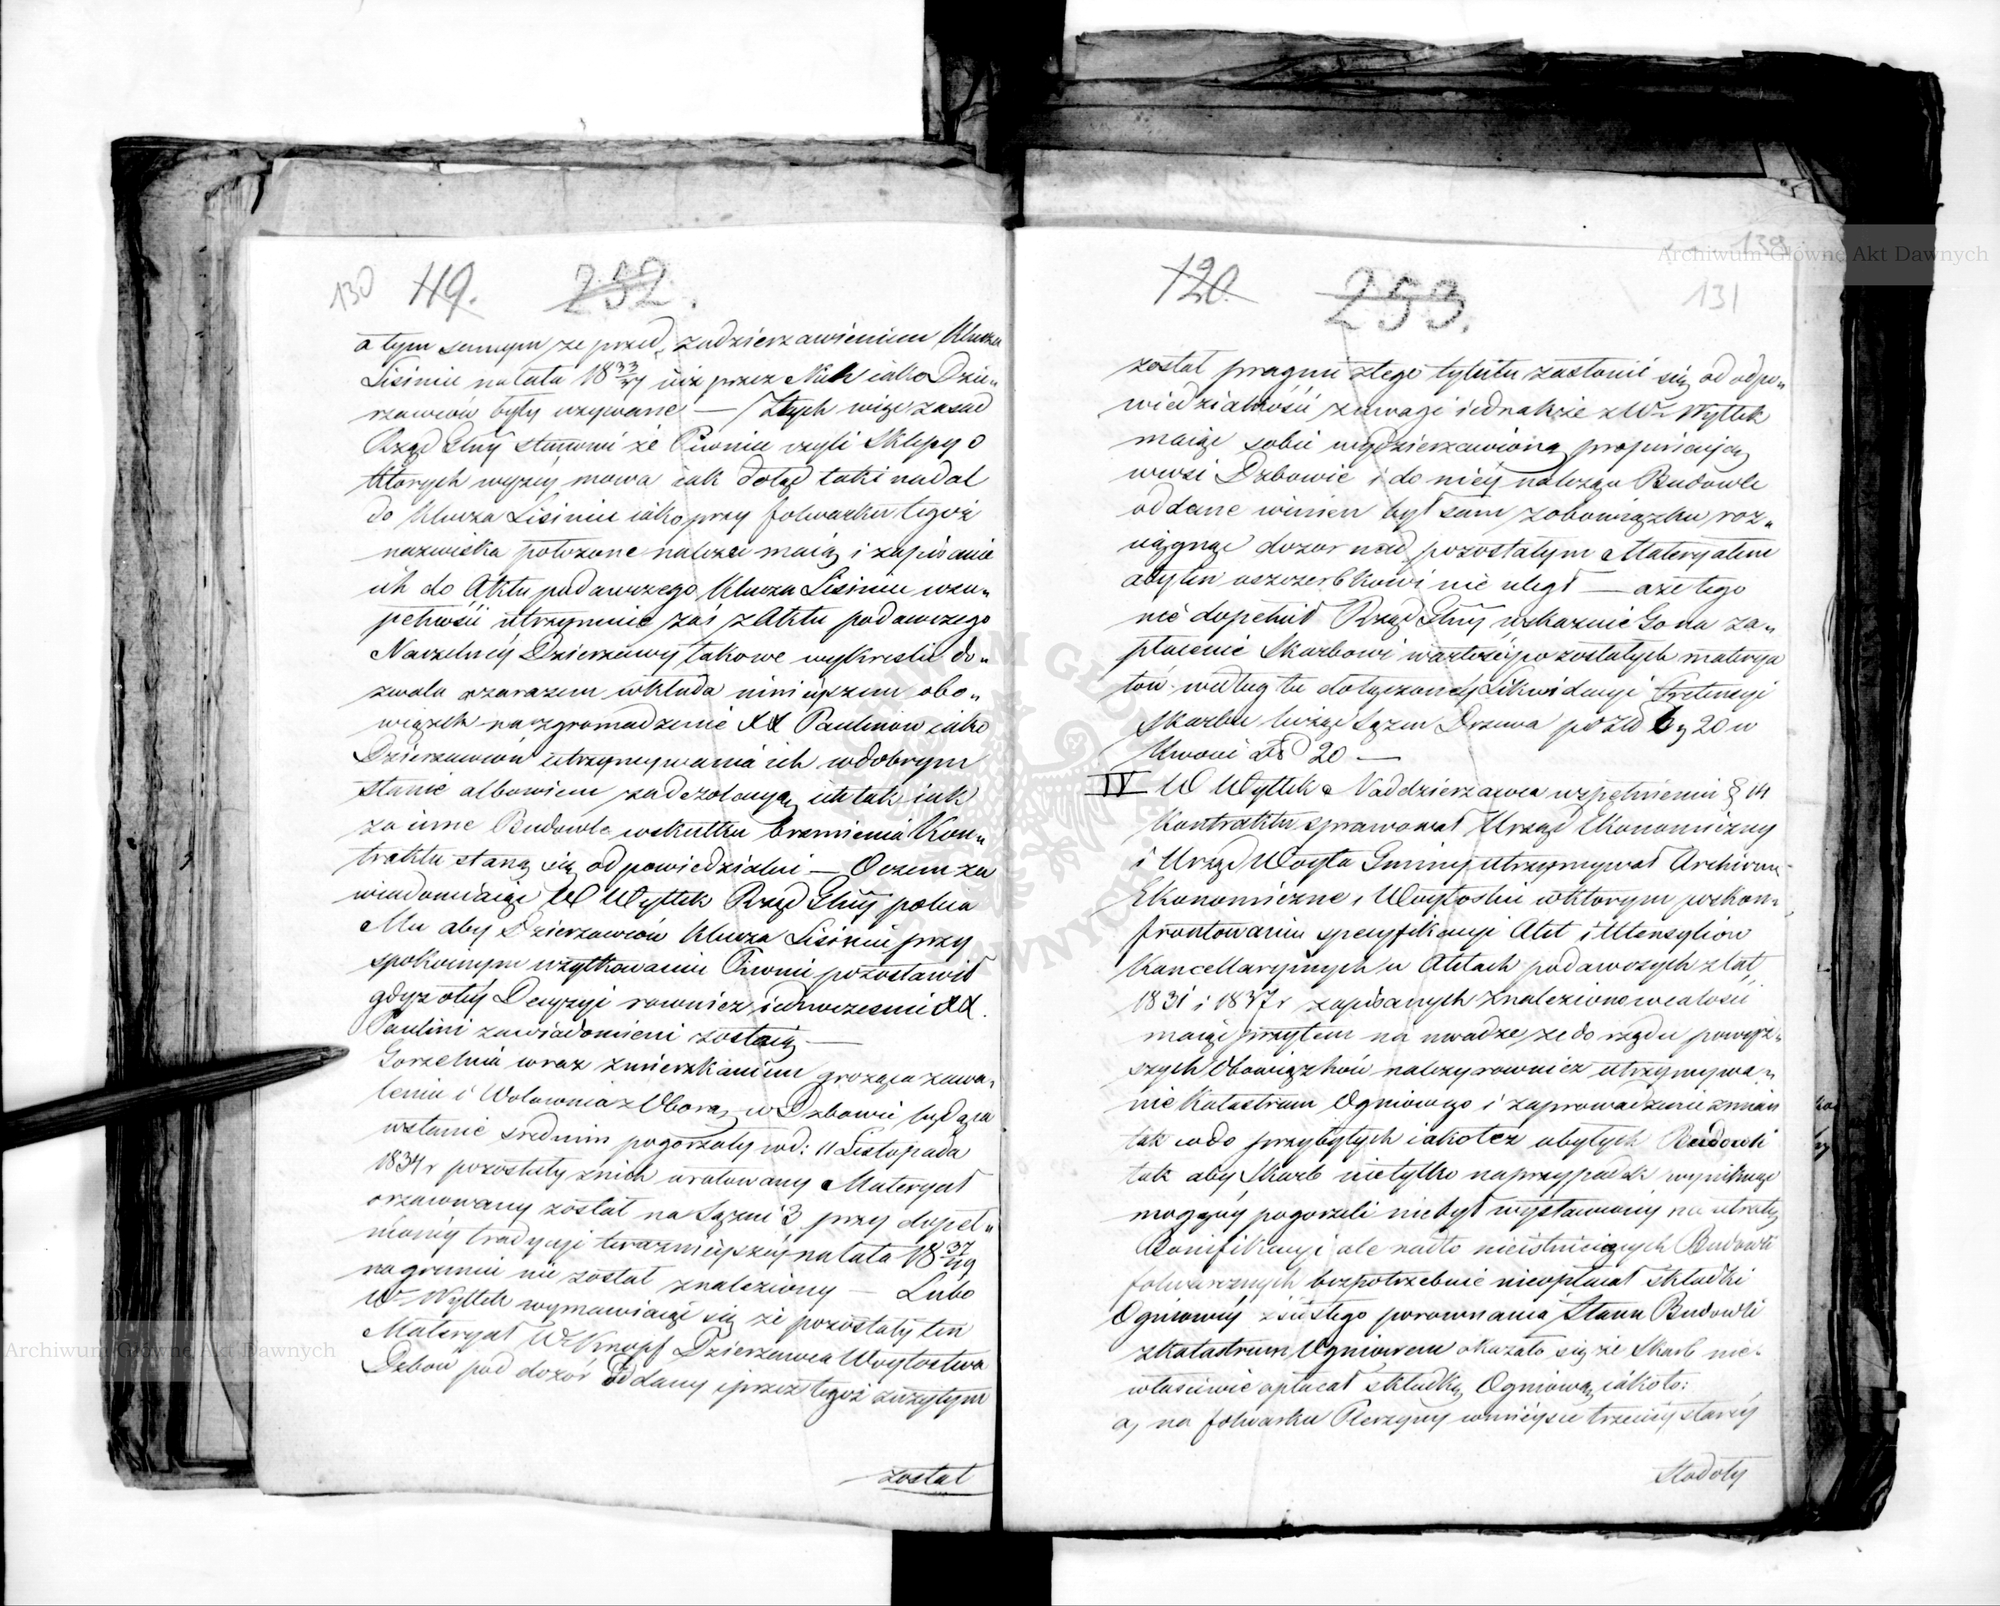 130 119. 252.
a tym samym że przed zadzierzawieniem Klucza
Lisiniec na lata 18 33/37 już przez Nich iako Dzie„
rzawców były używane — Z tych więc zasad
Rząd Głny stanowi że Piwnice czyli Sklepy o
których wyżéy mowa iak dotąd taki nadal
do Klucza Lisiniec iako przy folwarku tegoż
nazwiska położone należeć maią i zapisanie
ich do Aktu podawczego Klucza Lisiniec w zu„
pełności utrzymuie zaś z Aktu podawczego
Naczelnéy Dzierzawy takowe wykreślić do„
zwala zarazem wkłada ninieyszem obo„
wiązek na zgromadzenie XX Paulinów iako
Dzierzawców utrzymywania ich w dobrym
stanie albowiem za dezolacyą ich tak iak
za inne Budowle wskutku brzmienia Kon„
traktu staną się odpowiedzialni — O czem za
wiadomiaiąc W Wyttek Rząd Głny poleca
Mu aby Dzierzawców Klucza Lisiniec przy
spokoynym użytkowaniu Piwnic pozostawił
gdyż o téy Decyzyi rownież iednocześnie XX.
Paulini zawiadomieni zostaią —
Gorzelnia wraz z mieszkaniem grożąca zawa„
leniem i Wołownia z Oborą w Dzbowie będąca
w stanie średnim pogorzały w d: 11 Listopada
1834 r pozostały z nich uratowany Materyał
oszacowany został na Sążni 3 przy dopeł„
nionéy tradycyi terazniéyszéy na lata 18 37/49
na gruncie nie został znaleziony — Lubo
W Wyttek wymawiaiąc się że pozostały ten
Materyał W Knopf Dzierzawca Woytostwa
Dzbow pod dozór oddany i przez tegoż zużytym
został
120. 253. 139
131
został pragnie z tego tytułu zasłonić się od odpo„
wiedzialności zważając iednakże że W Wyttek
maiąc sobie wydzierzawioną propinacyą
we wsi Dzbowie i do niéy należące Budowle
oddane winien był sam z obowiązku roz„
ciągnąć dozor nad pozostałym Materyałem
aby ten uszczerbkowi nie uległ — a że tego
nie dopełnił Rząd Głny wskazuie Go na za„
płacenie Skarbowi wartości pozostałych materya
łów według tu dołączonéy Likwidacyi Pretensyi
Skarbu licząc Sążen Drzewa po złd 6 g 20 w
kwocie Zł 20 —
IV W Wyttek Naddzierzawca w spełnieniu § 14
Kontraktu sprawował Urząd Ekonomiczny
i Urząd Woyta Gminy utrzymywał Archiwum
Ekonomiczne i Woytoskie w którym po skon„
frontowaniu specyfikacyi Akt i Utensyliów
Kancellaryinych w Aktach podawczych z lat
1831 i 1837 r zapisanych znaleziono w całości
maiąc przytem na uwadze że do rzędu powyż„
szych Obowiązków należy rownież utrzymywa„
nie Katastrum Ogniowego i zaprowadzanie zmian
tak w do przybyłych iako też ubyłych Budowli
tak aby Skarb nie tylko na przypadek wyniknąć
mogącéy pogorzeli niebył wystawiony na utratę
Bonifikacyi ale nadto nieistnieiących Budowli
folwarcznych bezpotrzebnie nieopłacał składki
Ogniowéy z ścisłego porównania Stanu Budowli
z Katastrum Ogniowem okazało się że Skarb nie„
właściwie opłacał składkę Ogniową iako to:
a, na folwarku Pierzyny w mieysce trzeciéy staréy
Stodoły
Archiwum Główne Akt Dawnych
Archiwum Główne Akt Dawnych